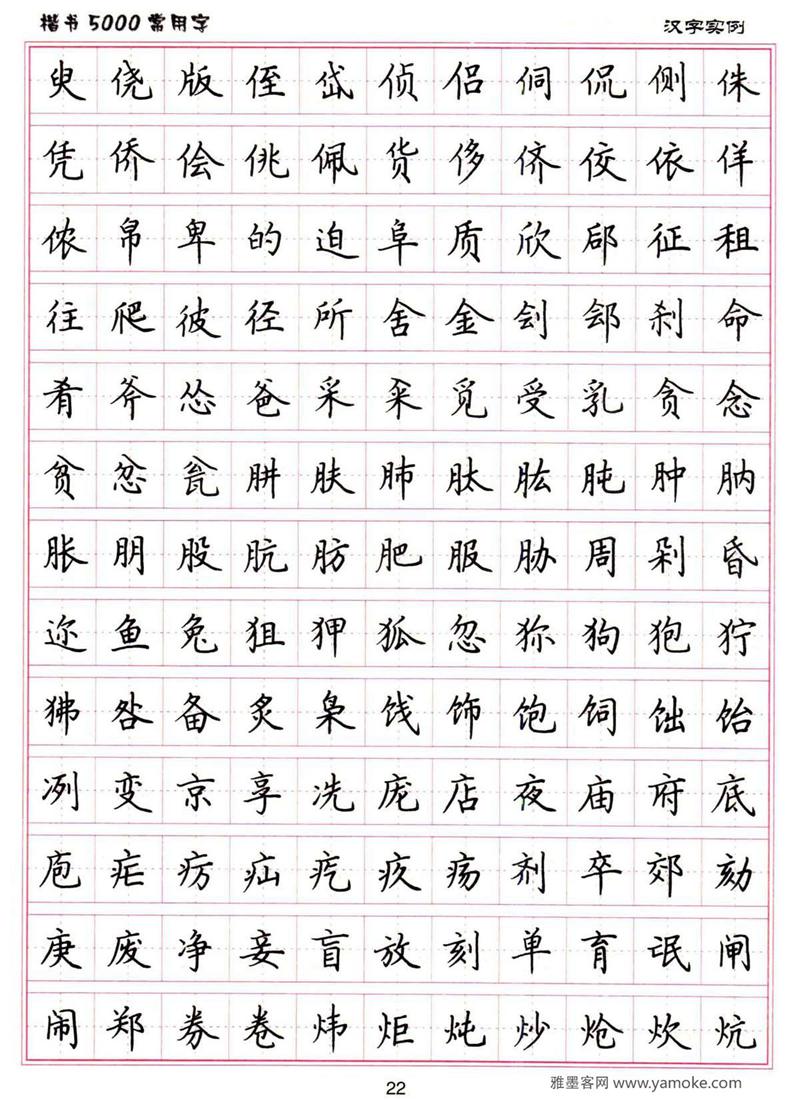 楷书5000常用字 汉字实例
臾侥版侄岱侦侣侗侃侧侏
凭侨侩佻佩货侈侪佼依佯
侬帛卑的迫阜质欣郈征徂
往爬彼径所舍金刽郐刹命
肴斧怂爸采籴觅受乳贪念
贫忿瓮肼肤肺肽肱肫肿肭
胀朋股肮肪肥服胁周剁昏
迩鱼兔狙狎狐忽狝狗狍狞
狒咎备炙枭饯饰饱饲饳饴
冽变京享冼庞店夜庙府底
庖疟疠疝疙疚疡剂卒郊劾
庚废净妾盲放刻单育氓闸
闹郑券卷炜炬炖炒炝炊炕
22
雅墨客网 www.yamoke.com